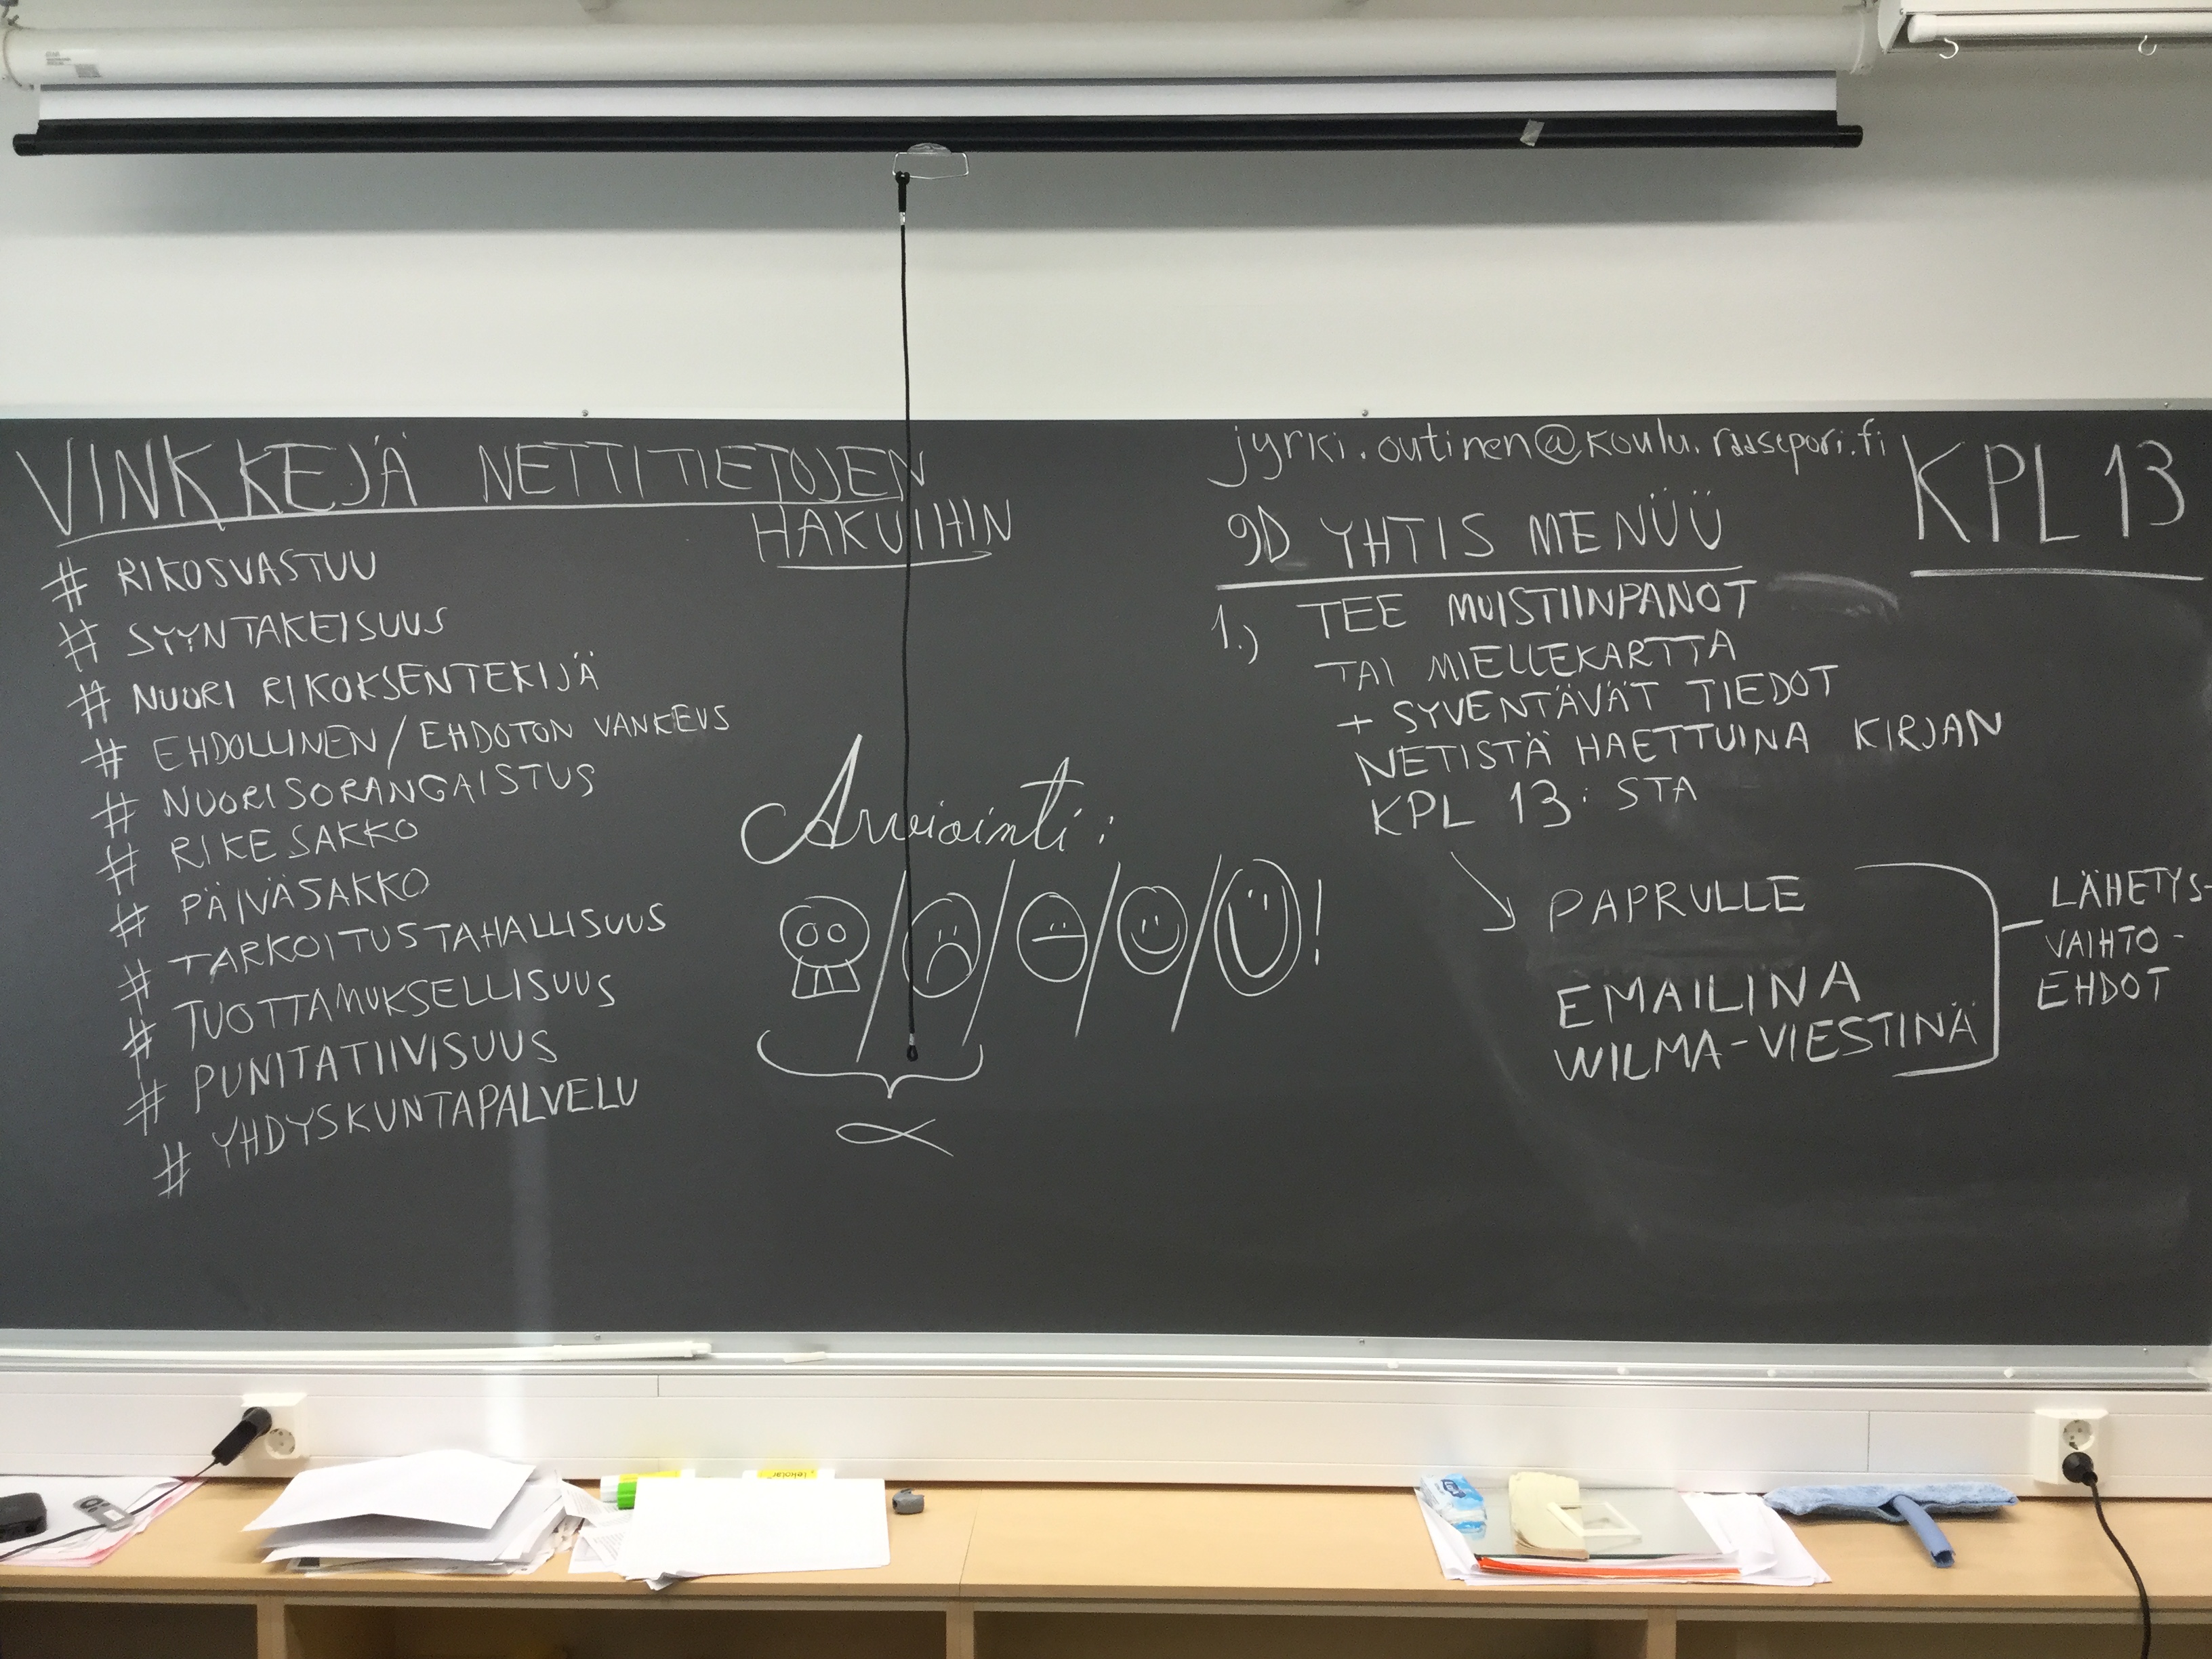 VINKKEJÄ NETTITIETOJEN
HAKUIHIN
# RIKOSVASTUU
# SYYNTAKEISUUS
# NUORI RIKOKSENTEKIJÄ
# EHDOLLINEN/EHDOTON VANKEUS
# NUORISORANGAISTUS
# RIKESAKKO
# PÄIVÄSAKKO
# TARKOITUSTAHALLISUUS
# TUOTTAMUKSELLISUUS
# PUNITATIIVISUUS
# YHDYSKUNTAPALVELU
Arviointi:
/ / / / !
jyrki.outinen@koulu.raasepori.fi
KPL 13
9D YHTIS MENÜÜ
1.) TEE MUISTIINPANOT
TAI MIELLEKARTTA
+ SYVENTÄVÄT TIEDOT
NETISTÄ HAETTUINA KIRJAN
KPL 13:STA
PAPRULLE
EMAILINA
WILMA-VIESTINÄ
LÄHETYS-
VAIHTO-
EHDOT